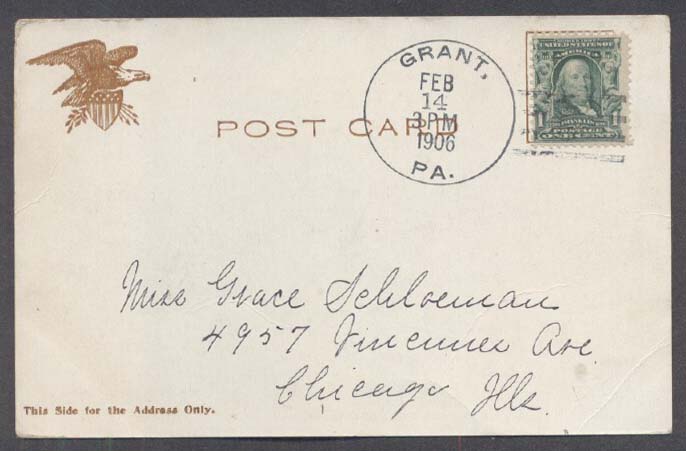 GRANT,
FEB
14
3 PM
1906
PA.
UNITED STATES OF
AMERICA
1 FRANKLIN 1
POSTAGE
ONE CENT
POST CARD
Miss Grace Schloeman
4957 Vincennes Ave
Chicago Ills.
This Side for the Address Only.